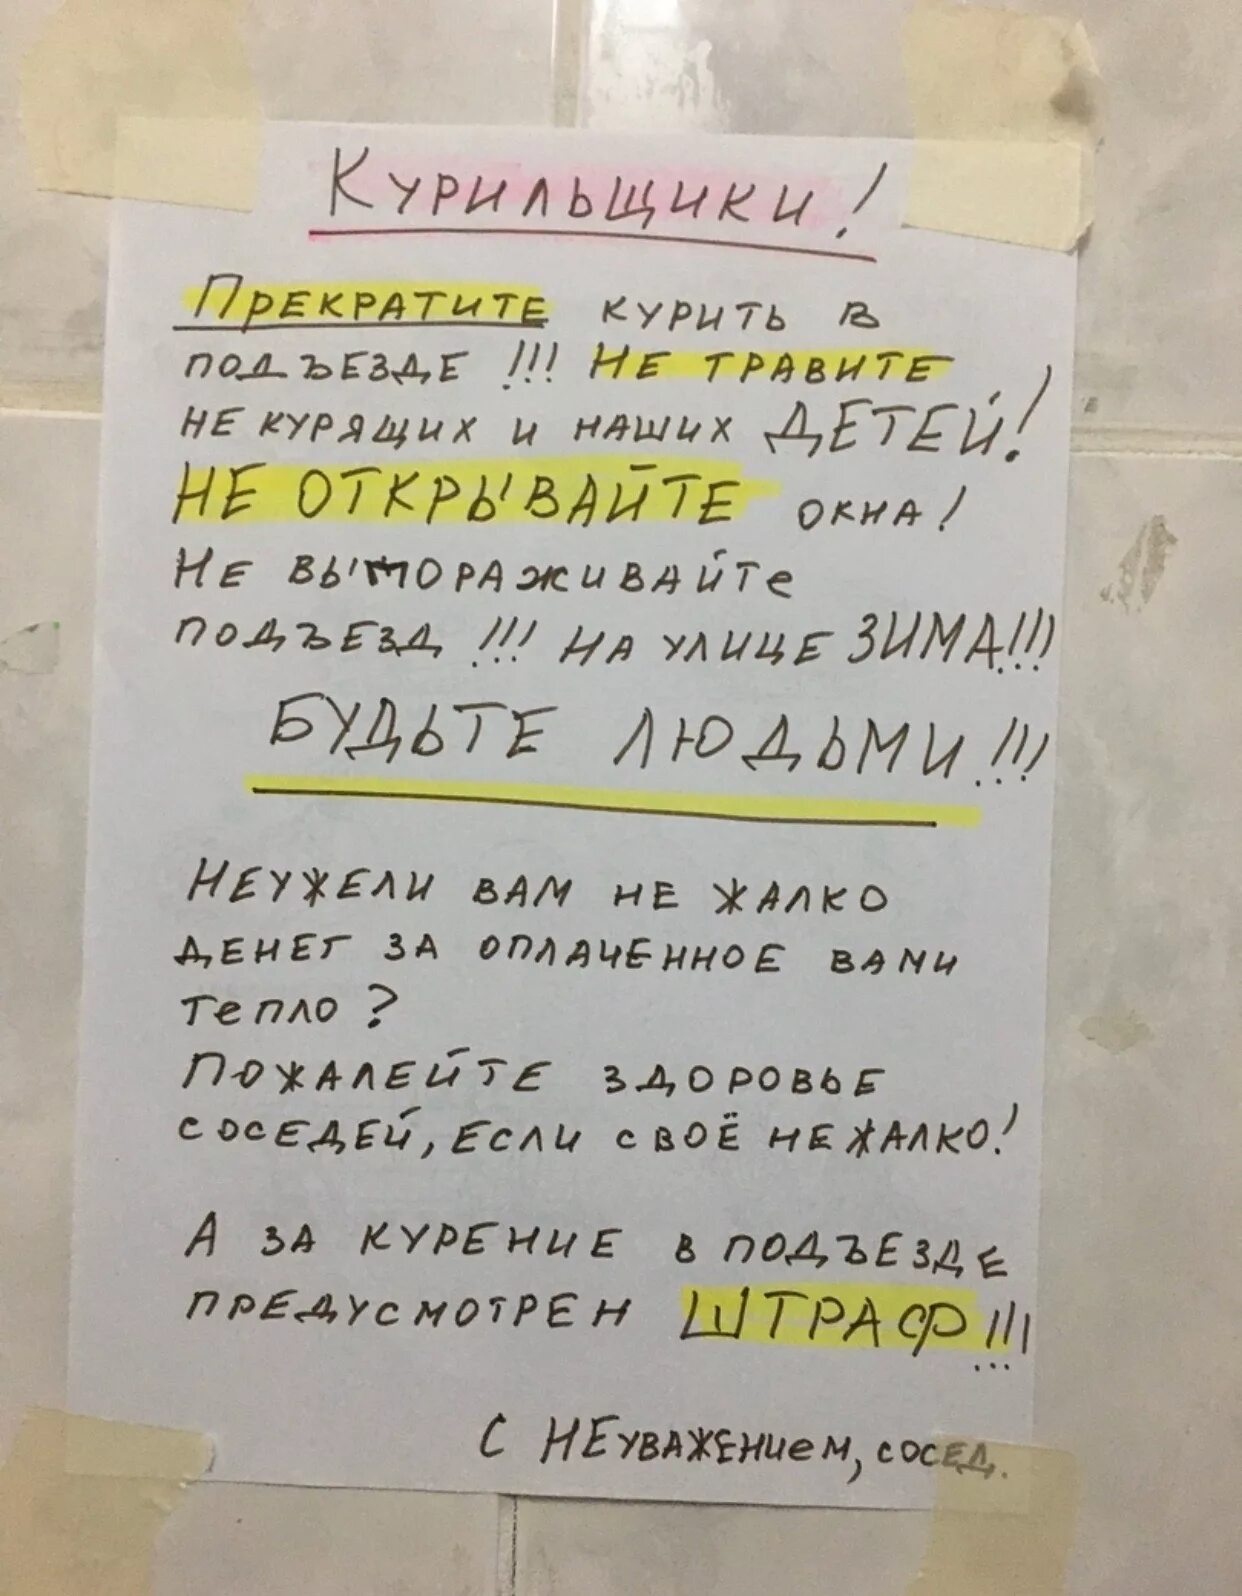 Курильщики!
Прекратите курить в
подъезде!!! Не травите
не курящих и наших ДЕТЕЙ!
НЕ ОТКРЫВАЙТЕ окна!
Не вымораживайте
подъезд!!! На улице ЗИМА!!!
БУДЬТЕ ЛЮДЬМИ!!!
Неужели вам не жалко
денег за оплаченное вами
тепло?
Пожалейте здоровье
соседей, если своё не жалко!
А за курение в подъезде
предусмотрен ШТРАФ!!!
С НЕуважением, сосед.